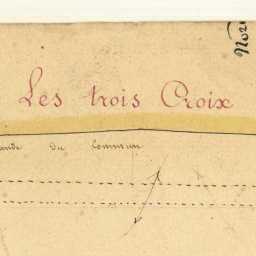 Les trois Croix
du Commun